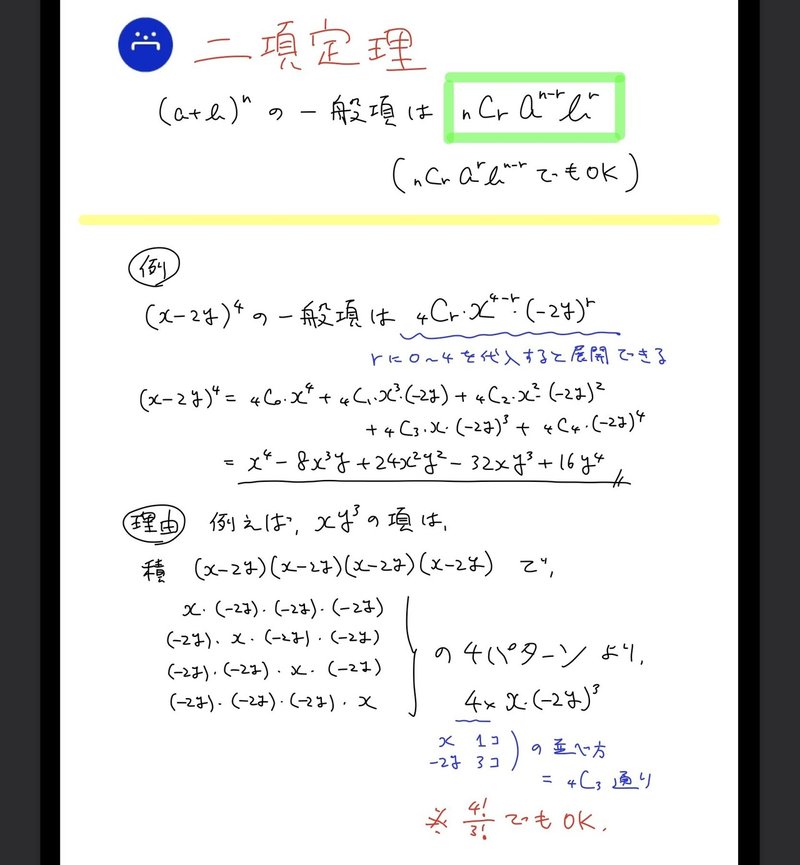 二項定理
(a+b)^n の一般項は nCr a^{n-r} b^r
(nCr a^r b^{n-r} でもOK)
例
(x-2y)^4 の一般項は 4Cr・x^{4-r}・(-2y)^r
rに0~4を代入すると展開できる
(x-2y)^4 = 4C0・x^4 + 4C1・x^3・(-2y) + 4C2・x^2・(-2y)^2
+ 4C3・x・(-2y)^3 + 4C4・(-2y)^4
= x^4 - 8x^3y + 24x^2y^2 - 32xy^3 + 16y^4
理由 例えば、xy^3の項は、
積 (x-2y)(x-2y)(x-2y)(x-2y) で、
x・(-2y)・(-2y)・(-2y)
(-2y)・x・(-2y)・(-2y)
(-2y)・(-2y)・x・(-2y)
(-2y)・(-2y)・(-2y)・x
の4パターンより、
4×x・(-2y)^3
x 1コ
-2y 3コ
の並べ方
= 4C3 通り
※ 4!/3! でもOK.